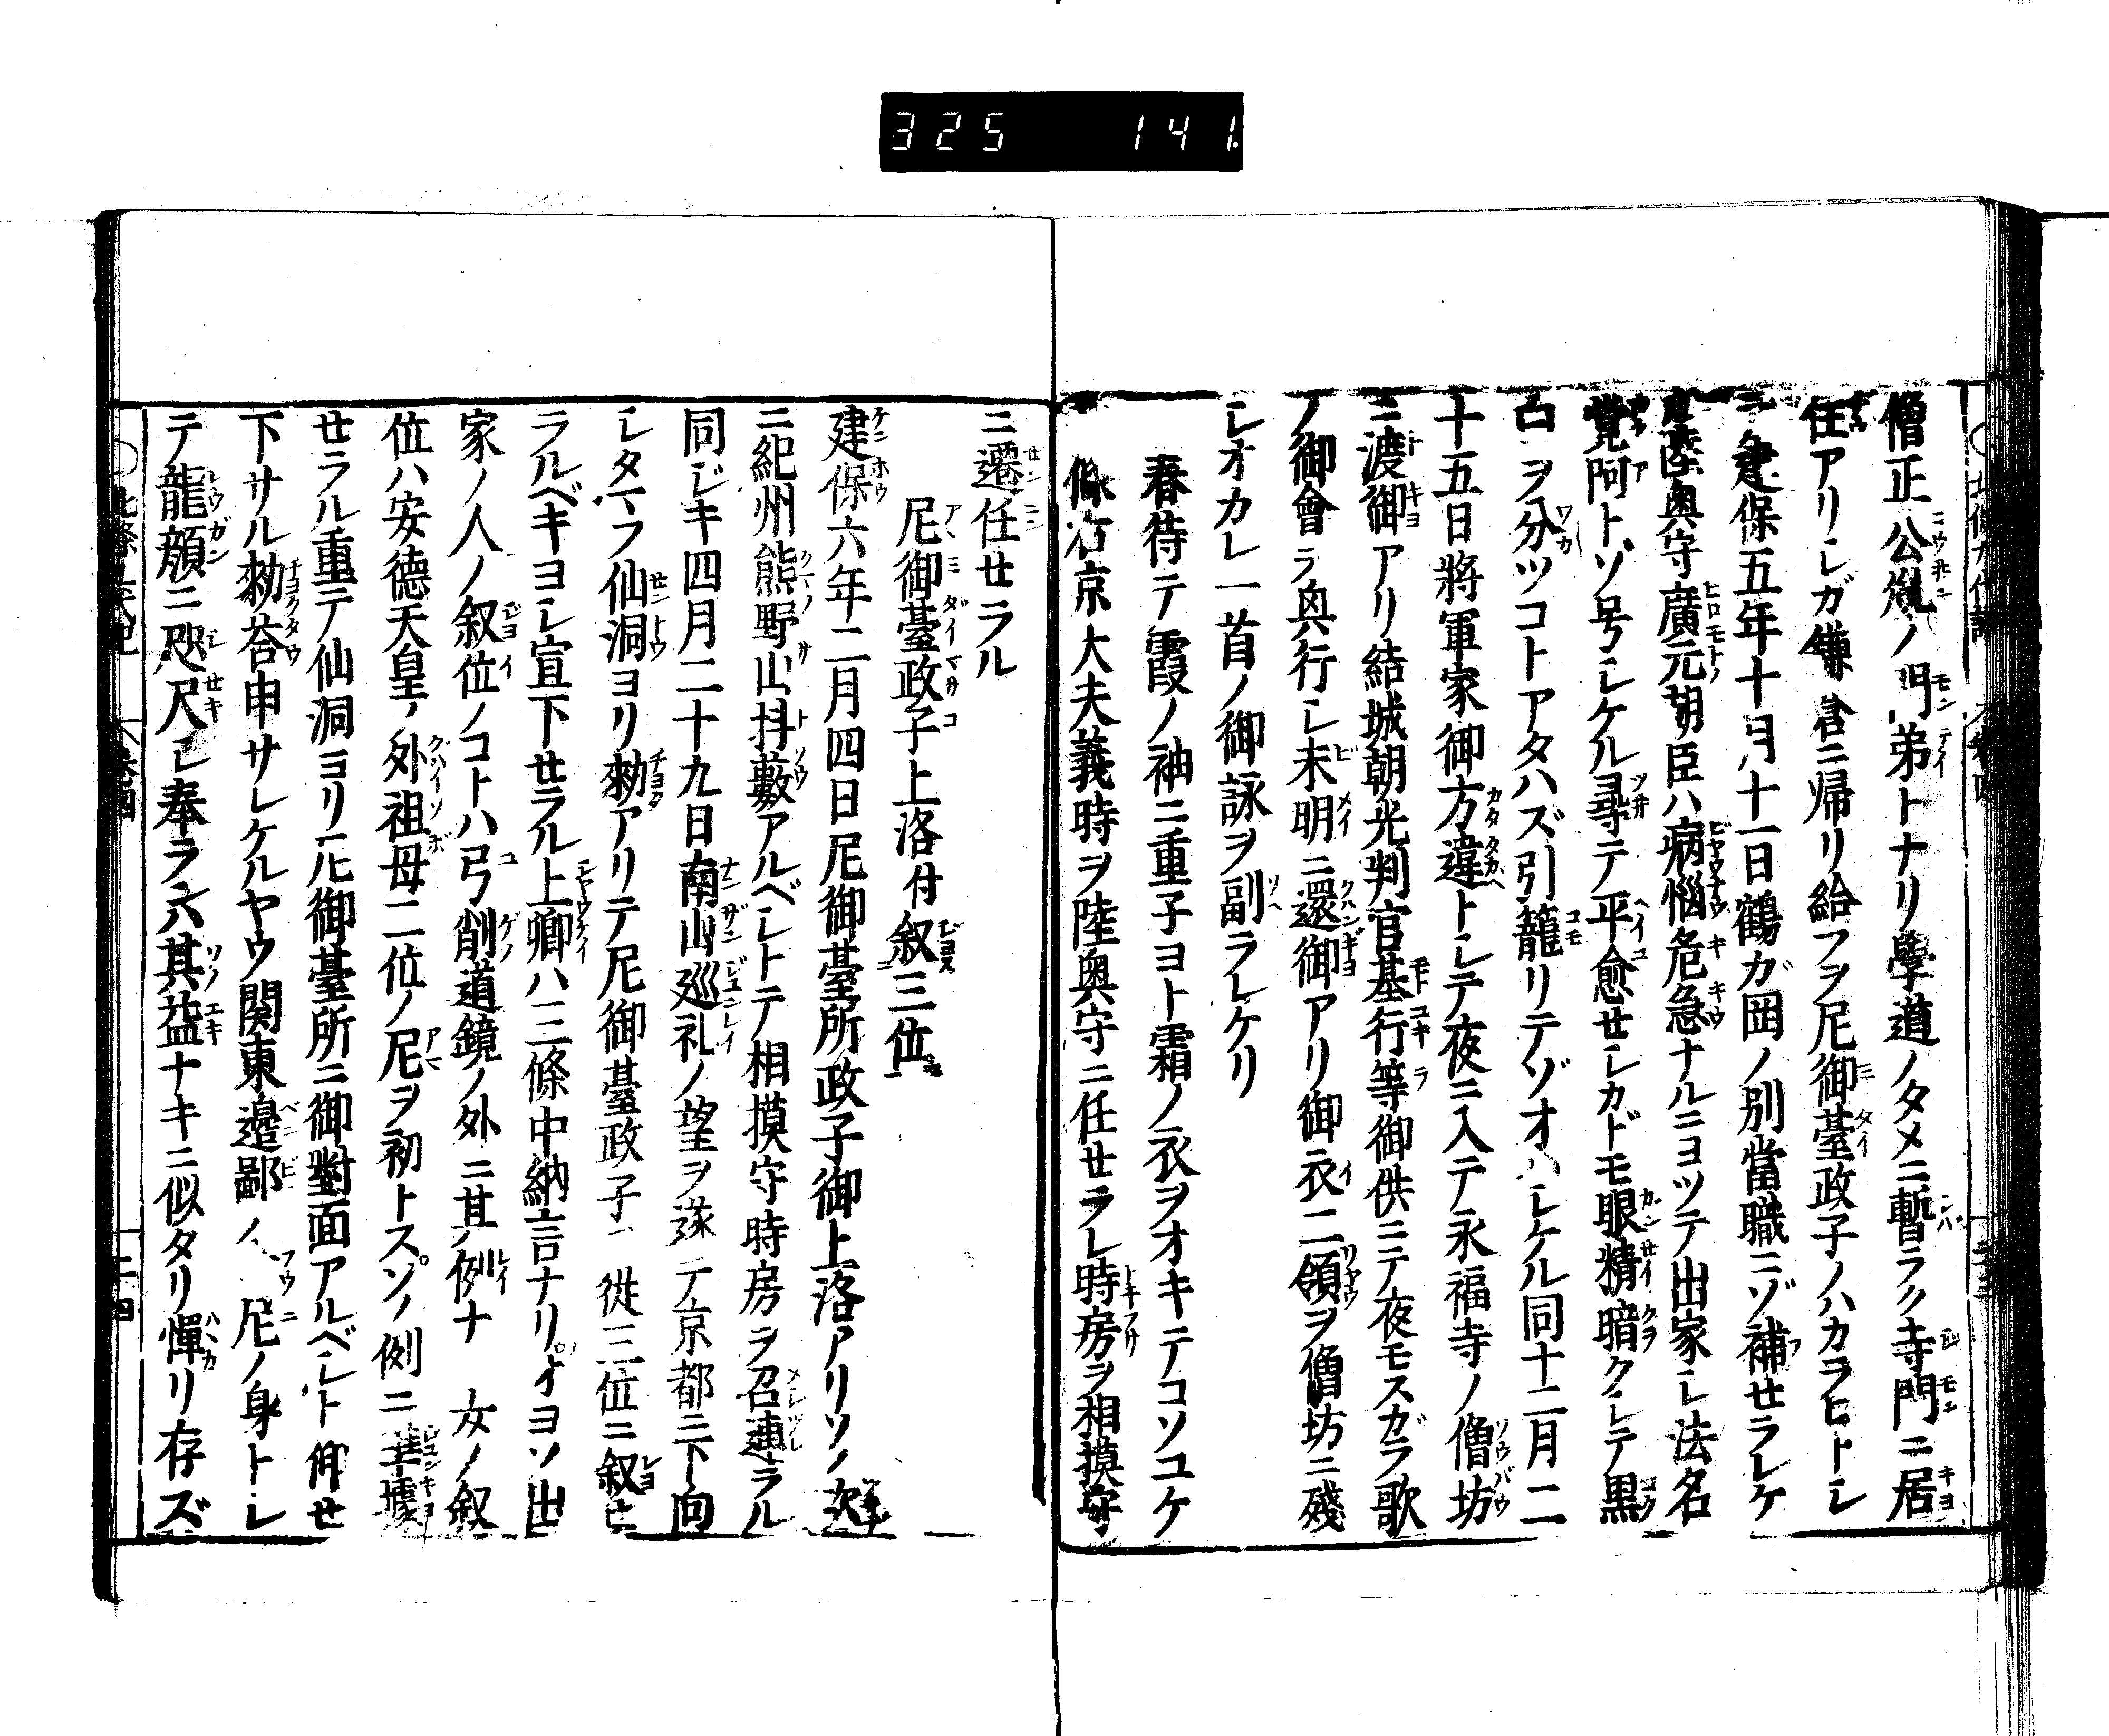 325 141.
僧正公胤ノ門弟トナリ學道ノタメニ暫ラク寺門ニ居
任アリシガ鎌倉ニ帰リ給フヲ尼御臺政子ノハカラヒトシ
テ建保五年十月十一日鶴ガ岡ノ別當職ニゾ補セラレケ
陸奥守廣元朝臣ハ病惱危急ナルニヨツテ出家シ法名
覚阿トゾ号シケル尋テ平愈セシカドモ眼精暗クシテ黒
白ヲ分ツコトアタハズ引籠リテゾオハシケル同十二月二
十五日將軍家御方違トシテ夜ニ入テ永福寺ノ僧坊
ニ渡御アリ結城朝光判官基行等御供ニテ夜モスガラ歌
ノ御會ヲ興行シ未明ニ還御アリ御衣二領ヲ僧坊ニ殘
シオカレ一首ノ御詠ヲ副ラレケリ
春待テ霞ノ袖ニ重子ヨト霜ノ衣ヲオキテコソユケ
條右京大夫義時ヲ陸奥守ニ任セラレ時房ヲ相摸守
ニ遷任セラル
尼御臺政子上洛付叙三位
建保六年二月四日尼御臺所政子御上洛アリソノ次
ニ紀州熊野山抖藪アルベシトテ相摸守時房ヲ召連ラル
同ジキ四月二十九日南山巡礼ノ望ヲ遂テ京都ニ下向
シタマフ仙洞ヨリ勅アリテ尼御臺政子従三位ニ叙セ
ラルベキヨシ宣下セラル上卿ハ三條中納言ナリオヨソ出
家ノ人ノ叙位ノコトハ弓削道鏡ノ外ニ其例ナ 女ノ叙
位ハ安德天皇ノ外祖母二位ノ尼ヲ初トスソノ例ニ準據
セラル重テ仙洞ヨリ尼御臺所ニ御對面アルベシト仰セ
下サル勅答申サレケルヤウ関東邉鄙ノ 尼ノ身トシ
テ龍顔ニ咫尺シ奉ラン其益ナキニ似タリ憚リ存ズ
巻四
二十四